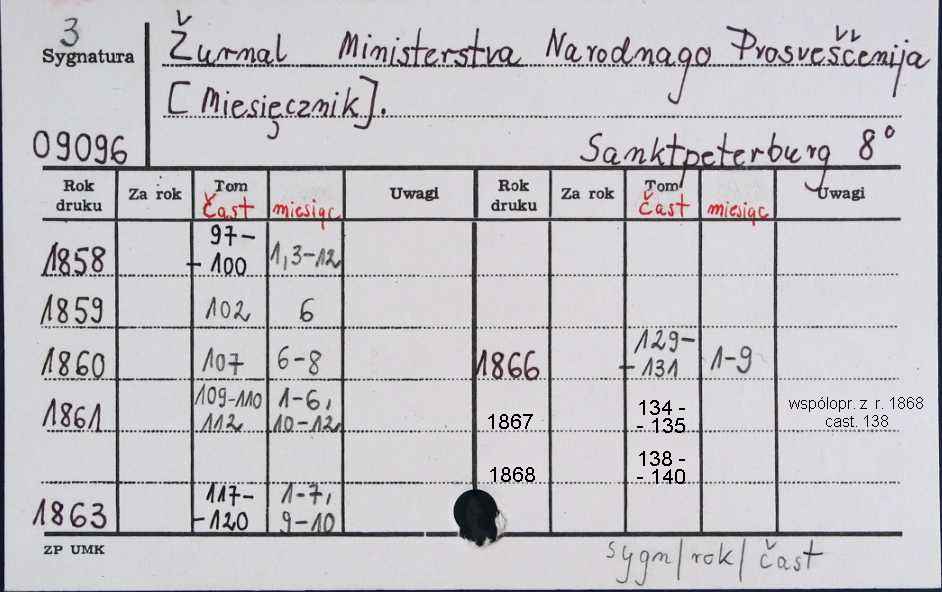 3
Sygnatura
Žurnal Ministerstva Narodnago Prosveščenija
[Miesięcznik].
09096
Sanktpeterburg 8°
Rok druku Za rok Tom část miesiąc Uwagi Rok druku Za rok Tom část miesiąc Uwagi
1858 97-
-100 1,3-12
1859 102 6
1860 107 6-8 1866 129-
-131 1-9
1861 109-110
112 1-6,
10-12 1867 134 -
- 135 wspólopr. z r. 1868
cast. 138
1868 138 -
- 140
1863 117-
-120 1-7,
9-10
ZP UMK
sygn/rok/část